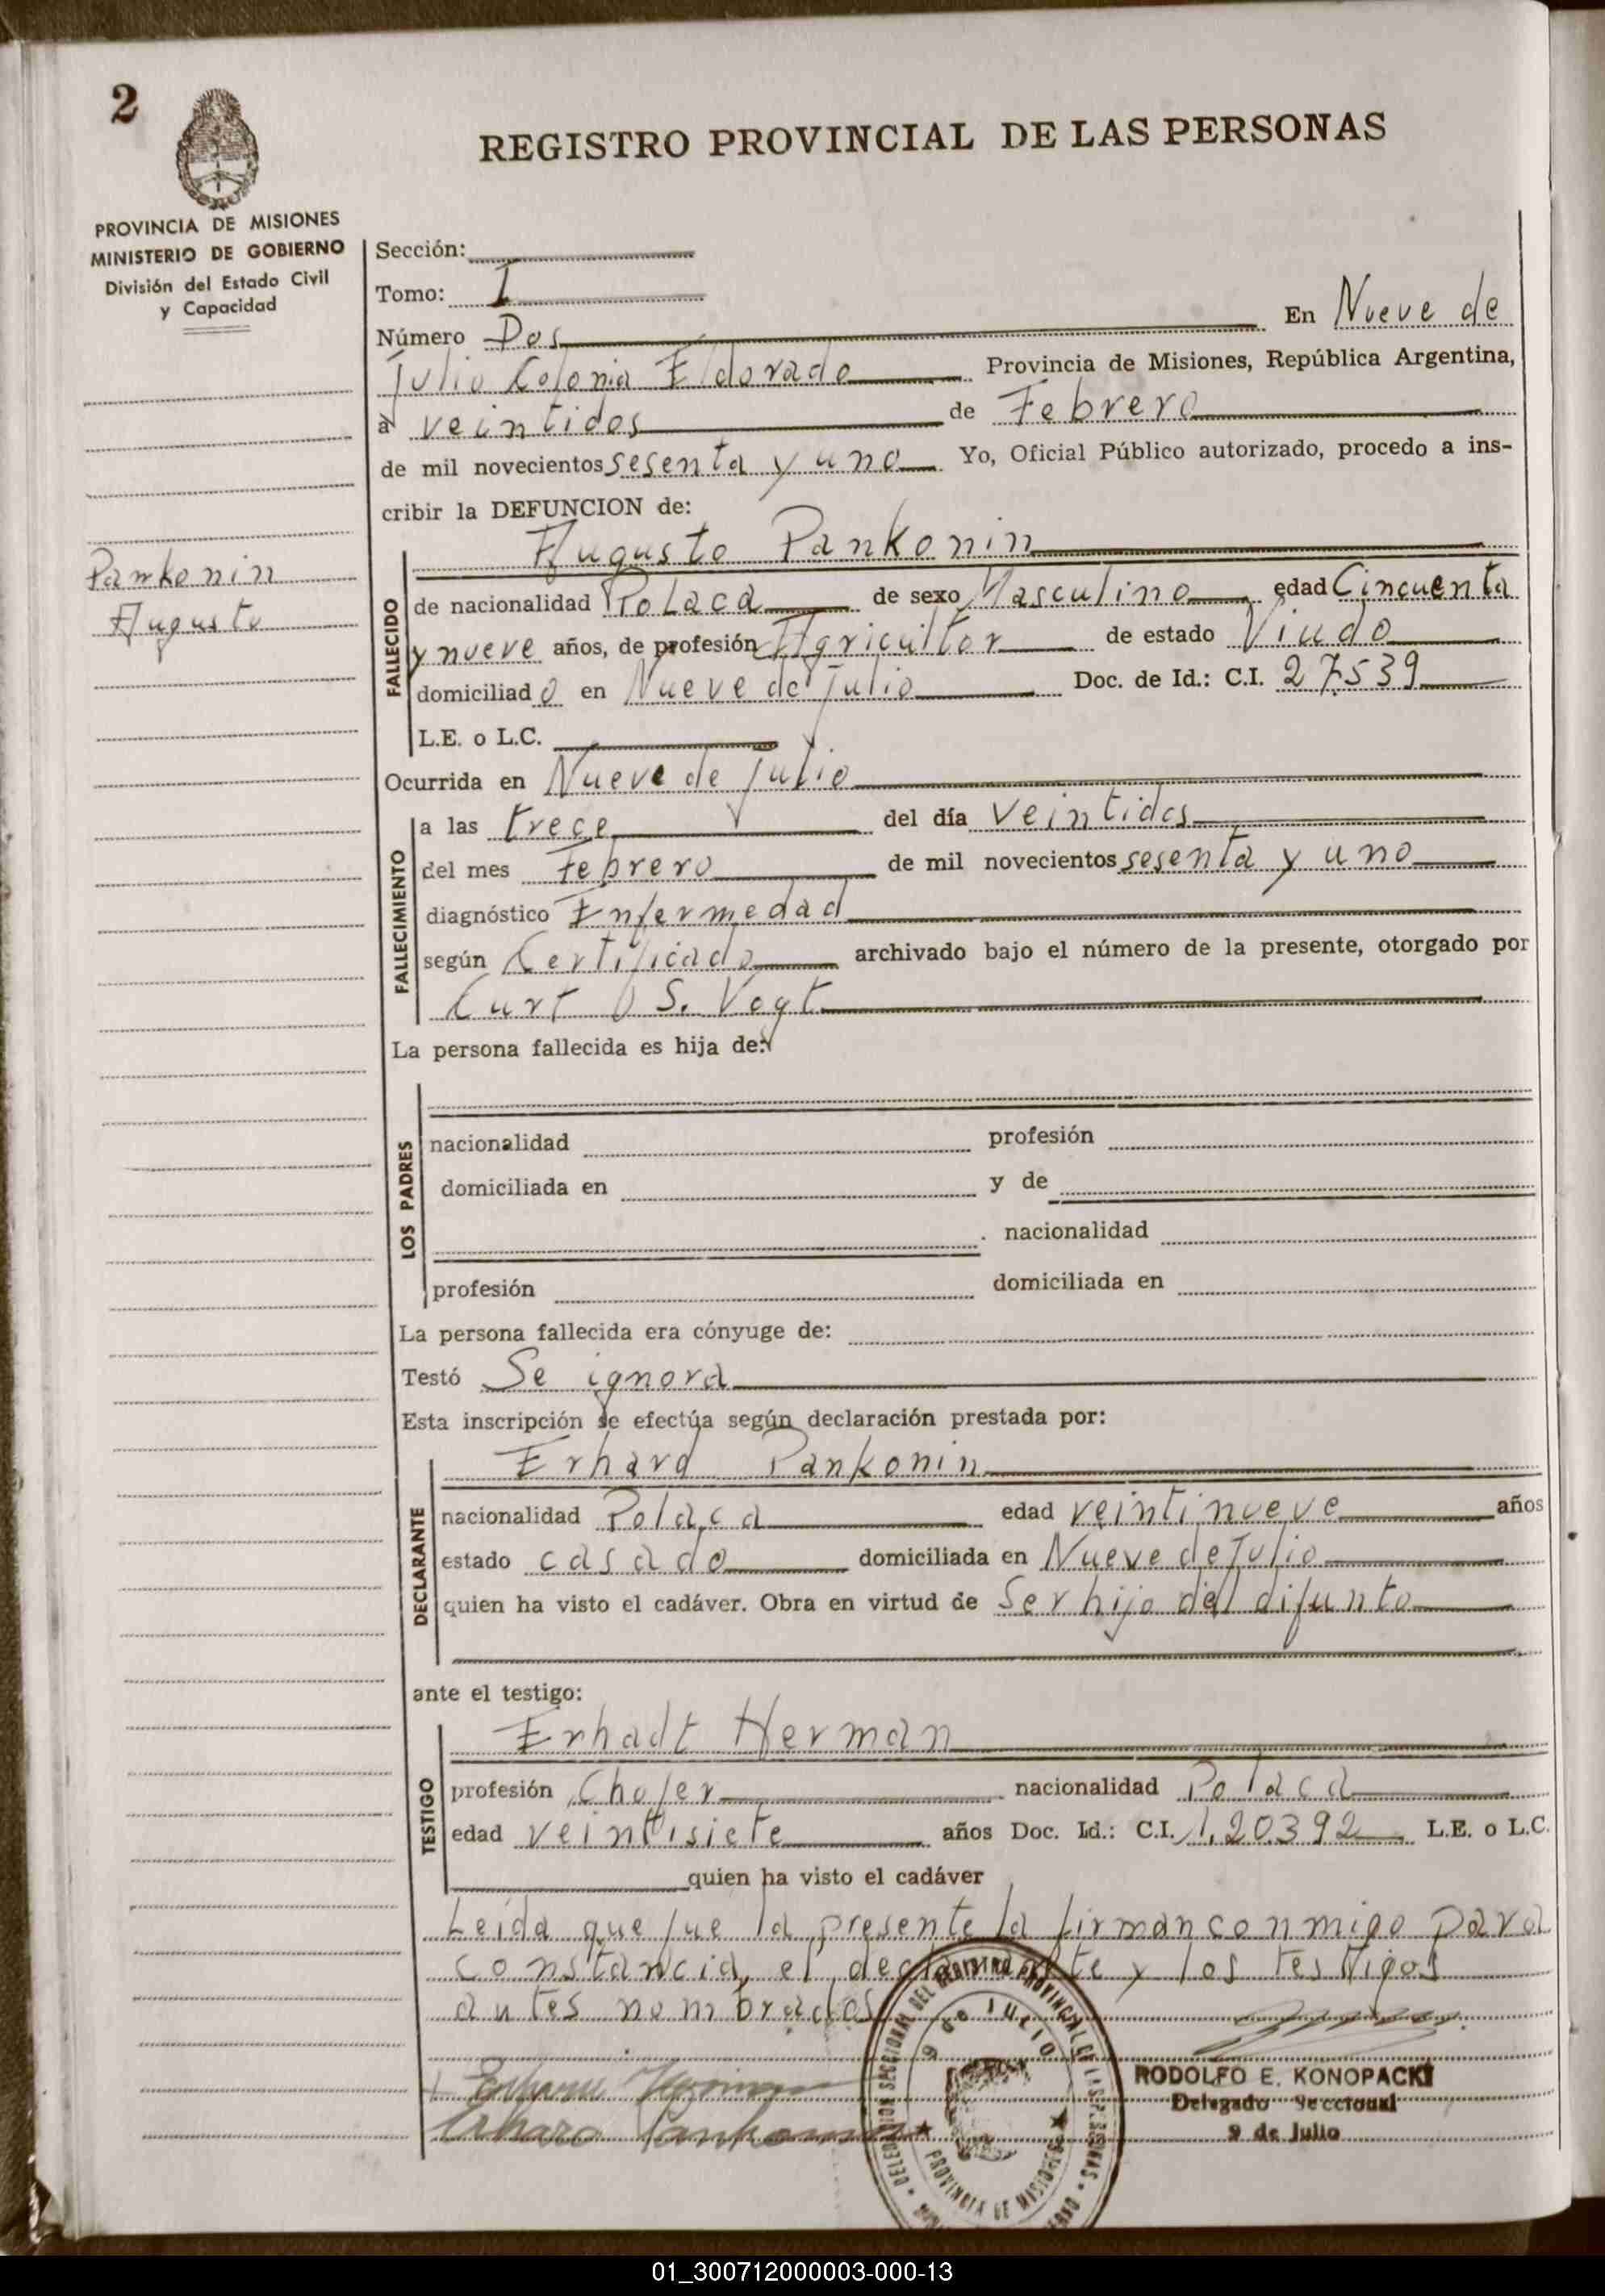 2
REGISTRO PROVINCIAL DE LAS PERSONAS
PROVINCIA DE MISIONES
MINISTERIO DE GOBIERNO
División del Estado Civil
y Capacidad
Pankonin
Augusto
Sección:
Tomo: I
Número Dos En Nueve de
Julio Colonia Eldorado Provincia de Misiones, República Argentina,
a veintidos de Febrero
de mil novecientos sesenta y uno Yo, Oficial Público autorizado, procedo a ins-
cribir la DEFUNCION de:
Augusto Pankonin
FALLECIDO
de nacionalidad Polaca de sexo Masculino edad Cincuenta
y nueve años, de profesión Agricultor de estado Viudo
domiciliado en Nueve de Julio Doc. de Id.: C.I. 27539
L.E. o L.C.
Ocurrida en Nueve de Julio
FALLECIMIENTO
a las trece del día Veintidos
del mes Febrero de mil novecientos sesenta y uno
diagnóstico Enfermedad
según Certificado archivado bajo el número de la presente, otorgado por
Curt S. Vogt
La persona fallecida es hija de:
LOS PADRES
nacionalidad profesión
domiciliada en y de
nacionalidad
profesión domiciliada en
La persona fallecida era cónyuge de:
Testó Se ignora
Esta inscripción se efectúa según declaración prestada por:
Erhard Pankonin
DECLARANTE
nacionalidad Polaca edad veintinueve años
estado casado domiciliada en Nueve de Julio
quien ha visto el cadáver. Obra en virtud de Ser hijo del difunto
ante el testigo:
Erhadt Herman
TESTIGO
profesión Chofer nacionalidad Polaca
edad veintisiete años Doc. Id.: C.I. 1.20392 L.E. o L.C.
quien ha visto el cadáver
Leida que fue la presente la firman conmigo para
constancia, el declarante y los testigos
antes nombrados
9 de JULIO
RODOLFO E. KONOPACKI
Delegado Seccional
9 de Julio
Erhard Pankonin
01_300712000003-000-13